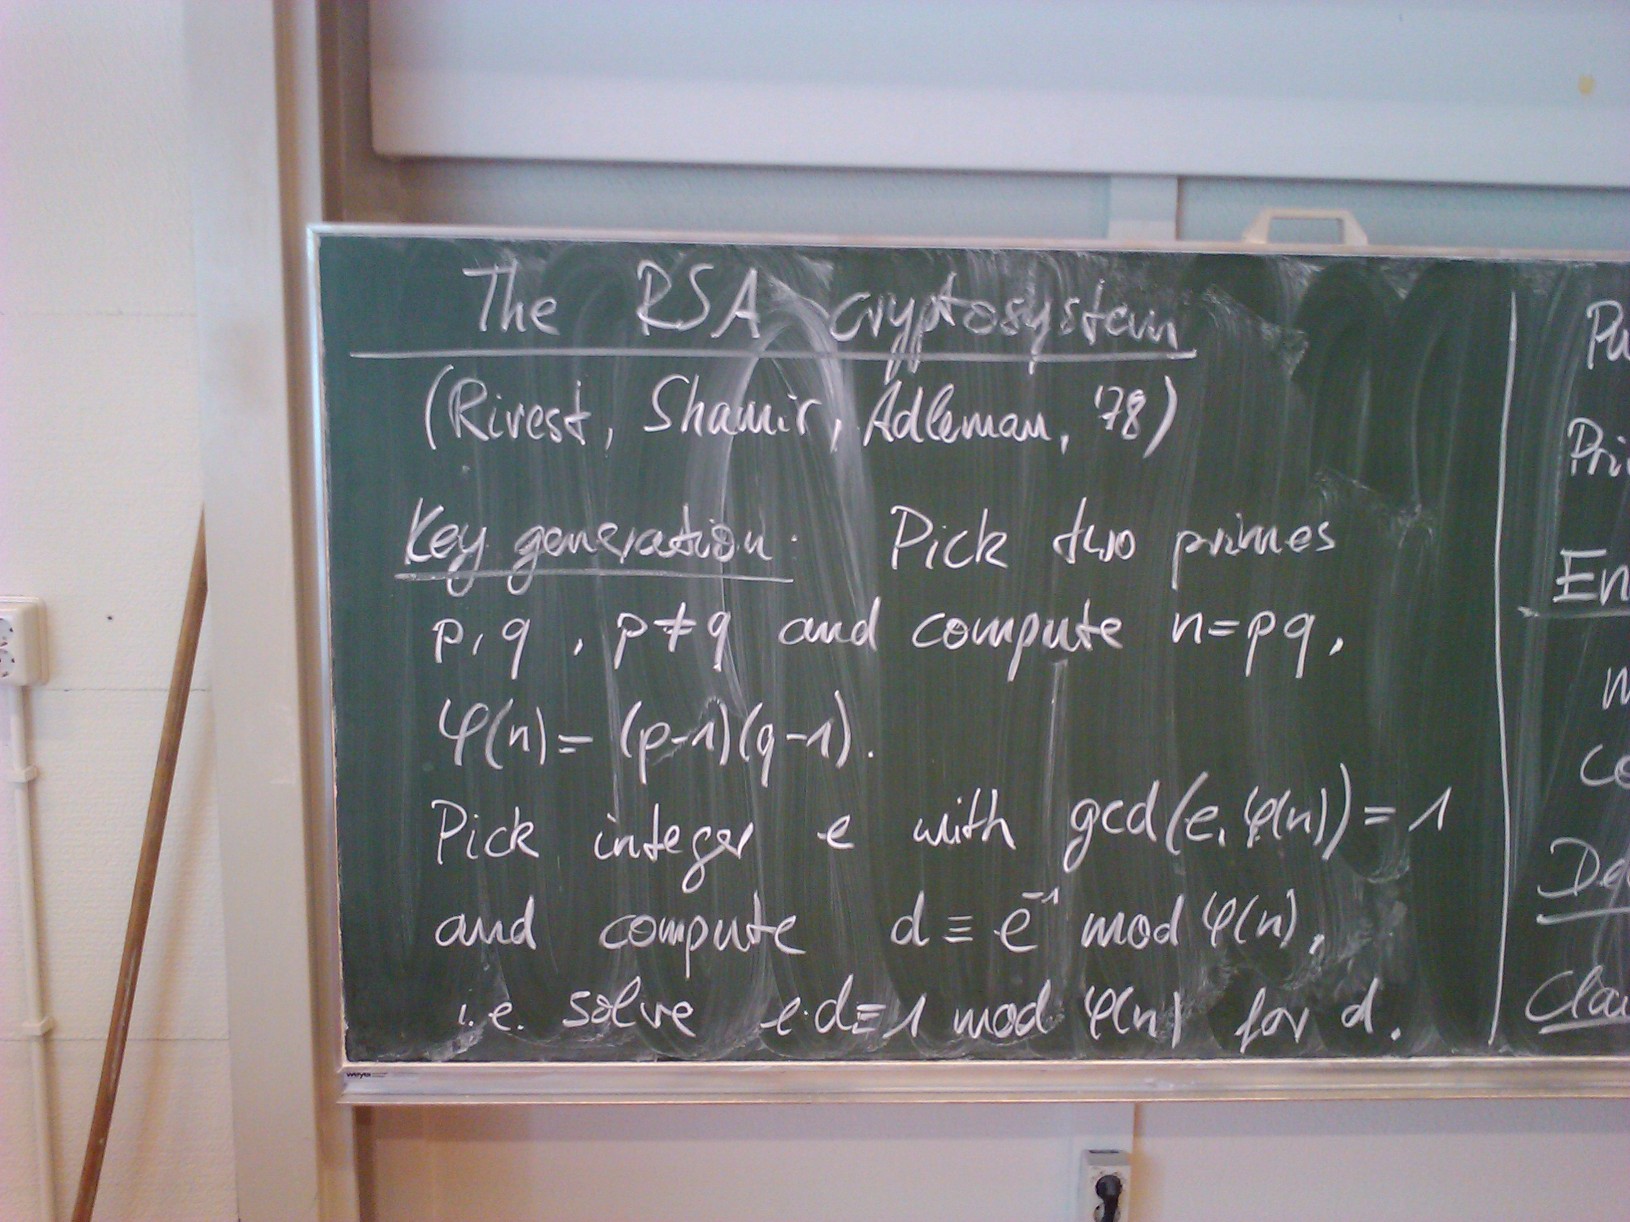 The RSA cryptosystem
(Rivest, Shamir, Adleman, '78)
Key generation: Pick two primes
p, q, p≠q and compute n=pq,
φ(n)= (p-1)(q-1).
Pick integer e with gcd(e, φ(n))=1
and compute d ≡ e⁻¹ mod φ(n),
i.e. solve e·d≡1 mod φ(n) for d.
Pu
Pri
En
m
co
De
Clai